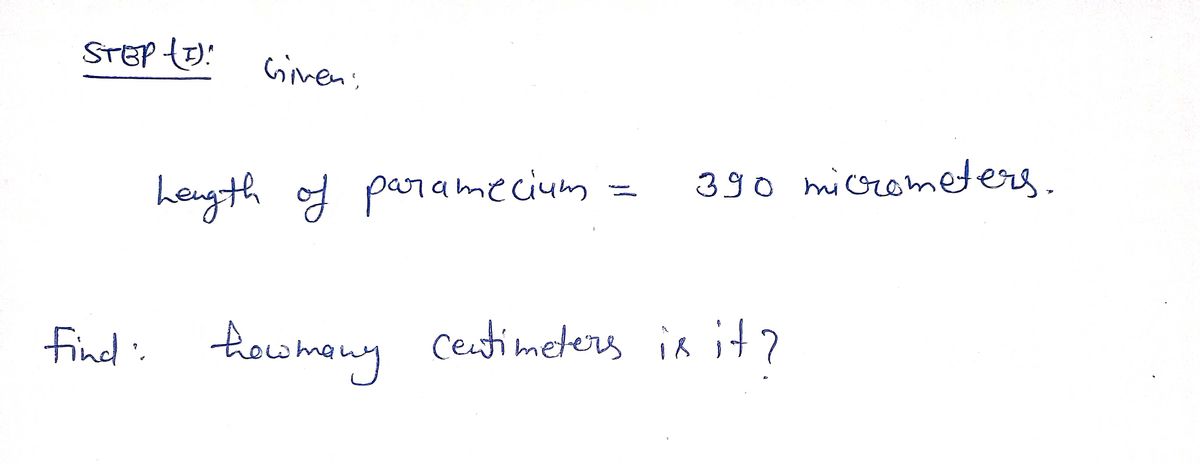 STEP (I):
Given:
Length of paramecium = 390 micrometers.
Find: howmany centimeters is it?